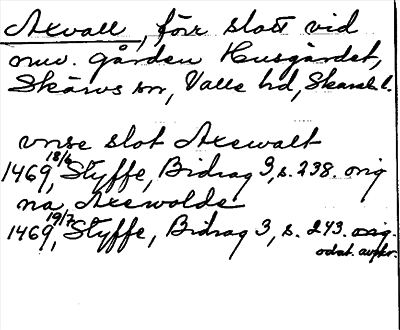 Axvall, förr slott vid
nuv. gården Husgärdet,
Skärvs sn, Valle hd, Skarab. l.
vnse slot Axewalt
1469 18/6, Styffe, Bidrag 3, s. 238. orig
na, Axewolde
1469 19/7, Styffe, Bidrag 3, s. 243. orig.
odat. avskr.